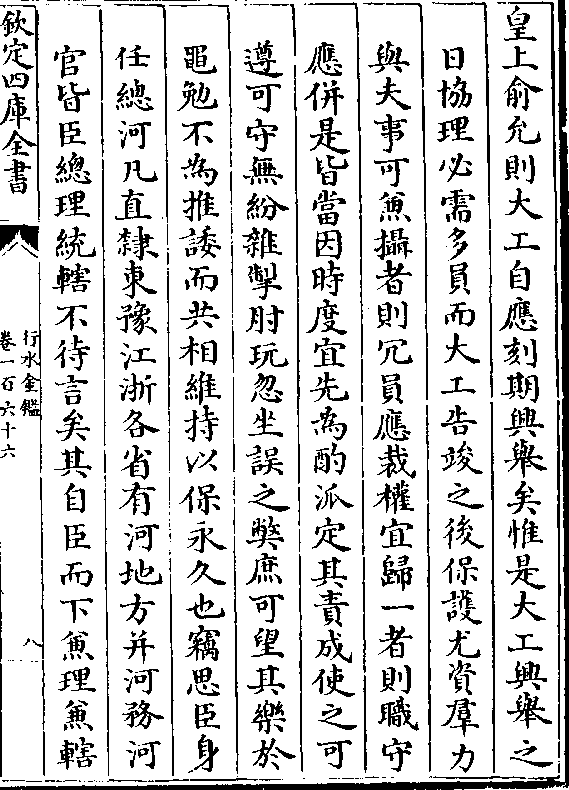 皇上俞允則大工自應刻期興舉矣惟是大工興舉之
日協理必需多員而大工告竣之後保護尤資羣力
與夫事可兼攝者則冗員應裁權宜歸一者則職守
應併是皆當因時度宜先為酌派定其責成使之可
遵可守無紛雜掣肘玩忽坐誤之弊庶可望其樂於
黽勉不為推諉而共相維持以保永久也竊思臣身
任總河凡直隸東豫江浙各省有河地方并河務河
官皆臣總理統轄不待言矣其自臣而下兼理兼轄
欽定四庫全書
行水金鑑
卷一百六十六
八